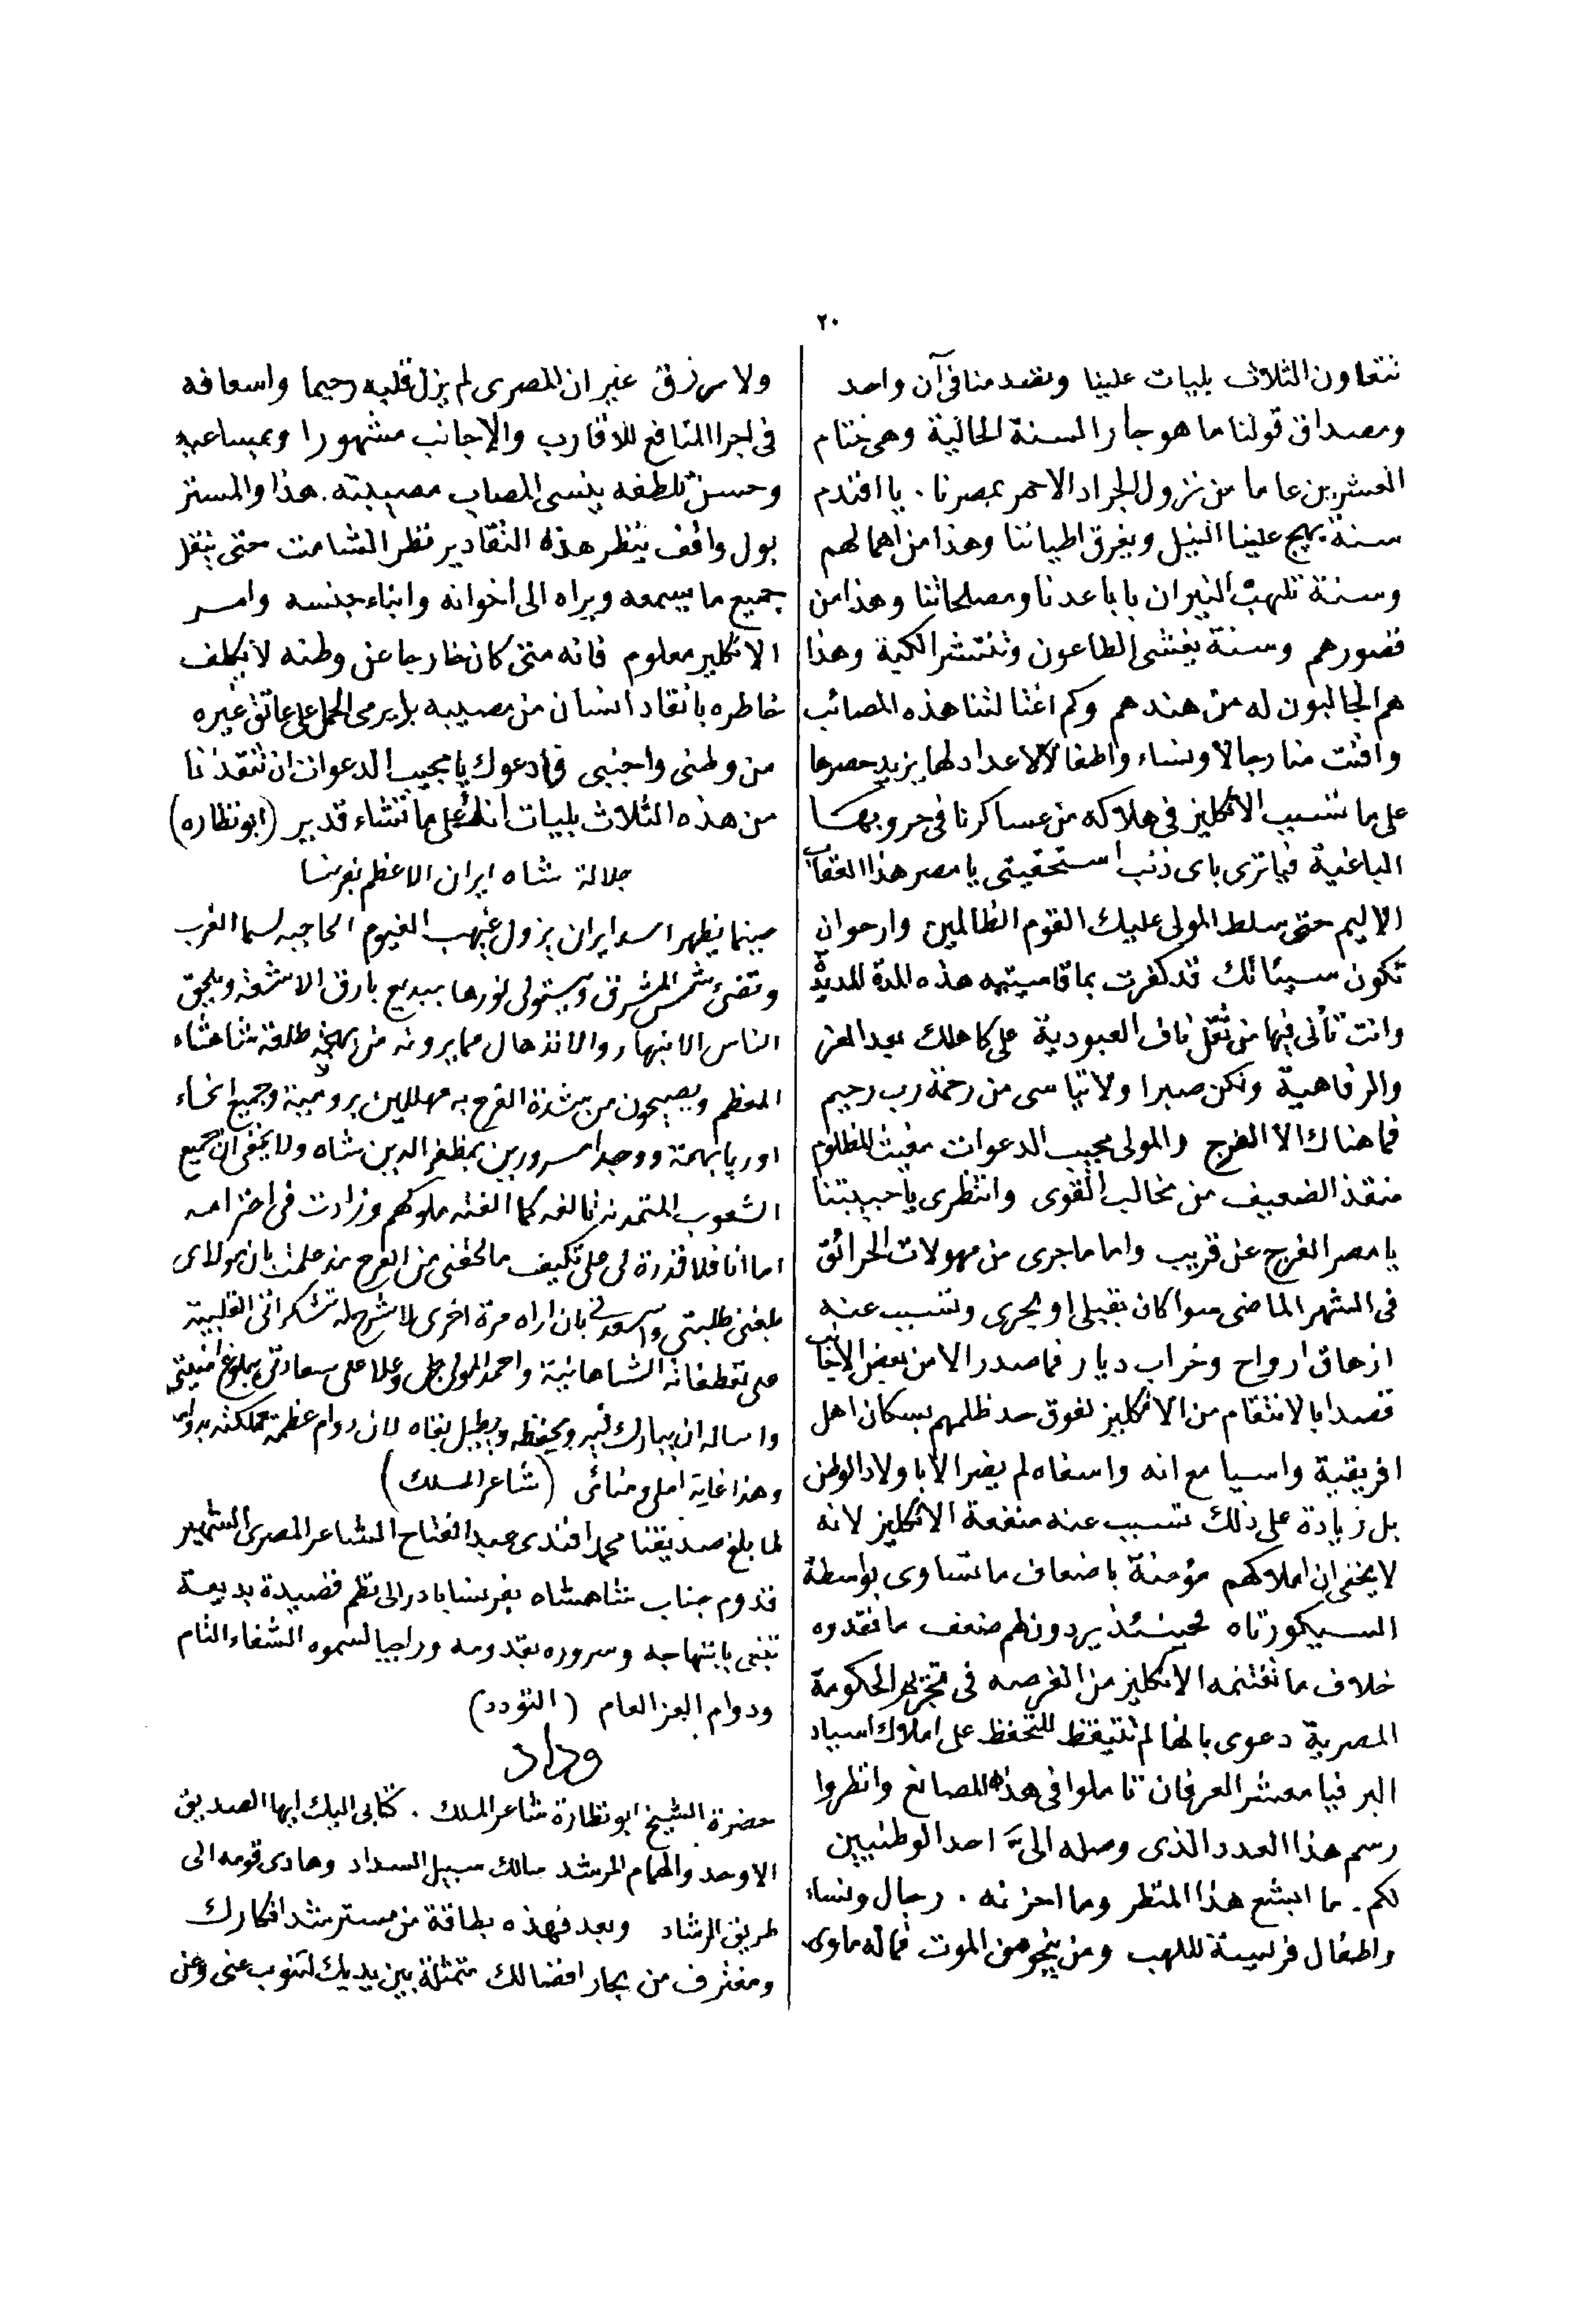 ٢٠
نتعاون الثلاث بليات علينا وتفسد منا فى آن واحد
ومصداق قولنا ما هو جار السنة الحالية وهى ختام
العشرين عاما من نزول الجراد الاحمر بمصرنا . يا افندم
سنة يهيج علينا النيل ويغرق اطياننا وهذا من اهمالهم
وسنة تلهب النيران باباعدنا ومصلحاتنا وهذا من
قصورهم وسنة يفتشى الطاعون وتنتشر الكبة وهذا
هم الجالبون له من هندهم وكم اغتالتنا هذه المصائب
وافنت منا رجالا ونساء واطفالا لاعداد لها يزيد حصرها
على ما تسبب الانكليز فى هلاكه من عساكرنا فى حروبها
الباغية فيا ترى باى ذنب استحقيتى يا مصر هذا العقاب
الاليم حتى سلط المولى عليك القوم الظالمين وارجو ان
تكون سيئاتك قد كفرت بما قاسيتيه هذه المدة المديدة
وانت تأنى فيها من ثقل ناف العبودية على كاهلك بعد العز
والرفاهية ولكن صبرا ولا تيأسى من رحمة رب رحيم
فما هناك الا الفرج والمولى مجيب الدعوات مغيث المظلوم
منقذ الضعيف من مخالب القوى وانتظرى يا حبيبتنا
يا مصر الفرج عن قريب واما ما جرى من مهولات الحرائق
فى الشهر الماضى سوا كان بقبلى او بحرى وتسبب عنه
ازهاق ارواح وخراب ديار فما صدر الا من بعض الاجانب
قصدا بالانتقام من الانكليز لفوق حد ظلمهم بسكان اهل
افريقية واسيا مع انه واسفاه لم يضر الا باولاد الوطن
بل زيادة على ذلك تسبب عنه منفعة الانكليز لانه
لا يخفى ان املاكهم مؤمنة باضعاف ما تساوى بواسطة
السيكورتاه فحينئذ يردون لهم ضعف ما فقدوه
خلاف ما تغتنمه الانكليز من الفرصه فى الحكومة
المصرية دعوى بانها لم تتيقظ للتحفظ على املاك اسياد
البر فيا معشر العرفان تاملوا فى هذه المصائع وانظروا
رسم هذا العدد الذى وصله الىّ احد الوطنيين
لكم . ما ابشع هذا المنظر وما احزنه . رجال ونساء
واطفال فريسة للهب ومن ينجو من الموت فما له ماوى
ولا مرزق غير ان المصرى لم يزل قلبه رحيما واسعافه
فى اجرا المنافع للاقارب والاجانب مشهورا وبمساعيه
وحسن تلطفه ينسى المصاب مصيبته . هذا والمستر
بول واقف ينظر هذه التقادير نظر الشامت حتى ينقل
جميع ما يسمعه ويراه الى اخوانه وابناء جنسه وامر
الانكليز معلوم فانه متى كان خارجا عن وطنه لا يكلف
خاطره بانقاد انسان من مصيبه بل يرمى الحمل على عاتق غيره
من وطنى واجنبى فادعوك يا مجيب الدعوات ان تنقذنا
من هذه الثلاث بليات انك على ما تشاء قدير (ابو نظاره)
جلالة شاه ايران الاعظم بفرنسا
حينما يظهر اسد ايران يزول غيهب الغيوم الحاجبه لسما الغرب
وتضئ شمس المشرق ويستولى نورها ببديع بارق الاشعة ويلحق
الناس الانبهار والانذهال مما يرونه من بهجة طلعة شاهنشاه
المعظم ويصيحون من شدة الفرح به مهللين برومية وجميع انحاء
اوربا بهمة ووجدا مسرورين بمظفر الدين شاه ولا يخفى ان جميع
الشعوب المتمدنه تالفه كما الفته ملوكهم وزادت فى احترامه
اما انا فلا قدرة لى على تكييف ما لحقنى من الفرح مذ علمت بان مولاى
بلغنى طلبتى واسعدنى بان اراه مرة اخرى لاشرح له تشكراتى القلبية
على تعطفاته الشاهانية واحمد المولى جل وعلا على سعادتى ببلوغ امنيتى
واساله ان يبارك فيه ويحفظه ويطيل بقاه لان دوام عظمة مملكته بدوامه
وهذا غاية املى ومنائى (شاعر الملك)
لما بلغ صديقنا محمد افندى عبد الفتاح الشاعر المصرى الشهير
قدوم جناب شاهنشاه بفرنسا بادر الى نظم قصيدة بديعة
تنبئ بابتهاجه وسروره بقدومه وراجيا لسموه الشفاء التام
ودوام العز العام (التودد)
وداد
حضرة الشيخ ابو نظارة شاعر الملك . كتابى اليك ايها الصديق
الاوحد والهمام المرشد سالك سبيل السداد وهادى قومه الى
طريق الرشاد وبعد فهذه بطاقة من مسترشد افكارك
ومغترف من بحار افضالك متمثلة بين يديك لتنوب عنى وعن